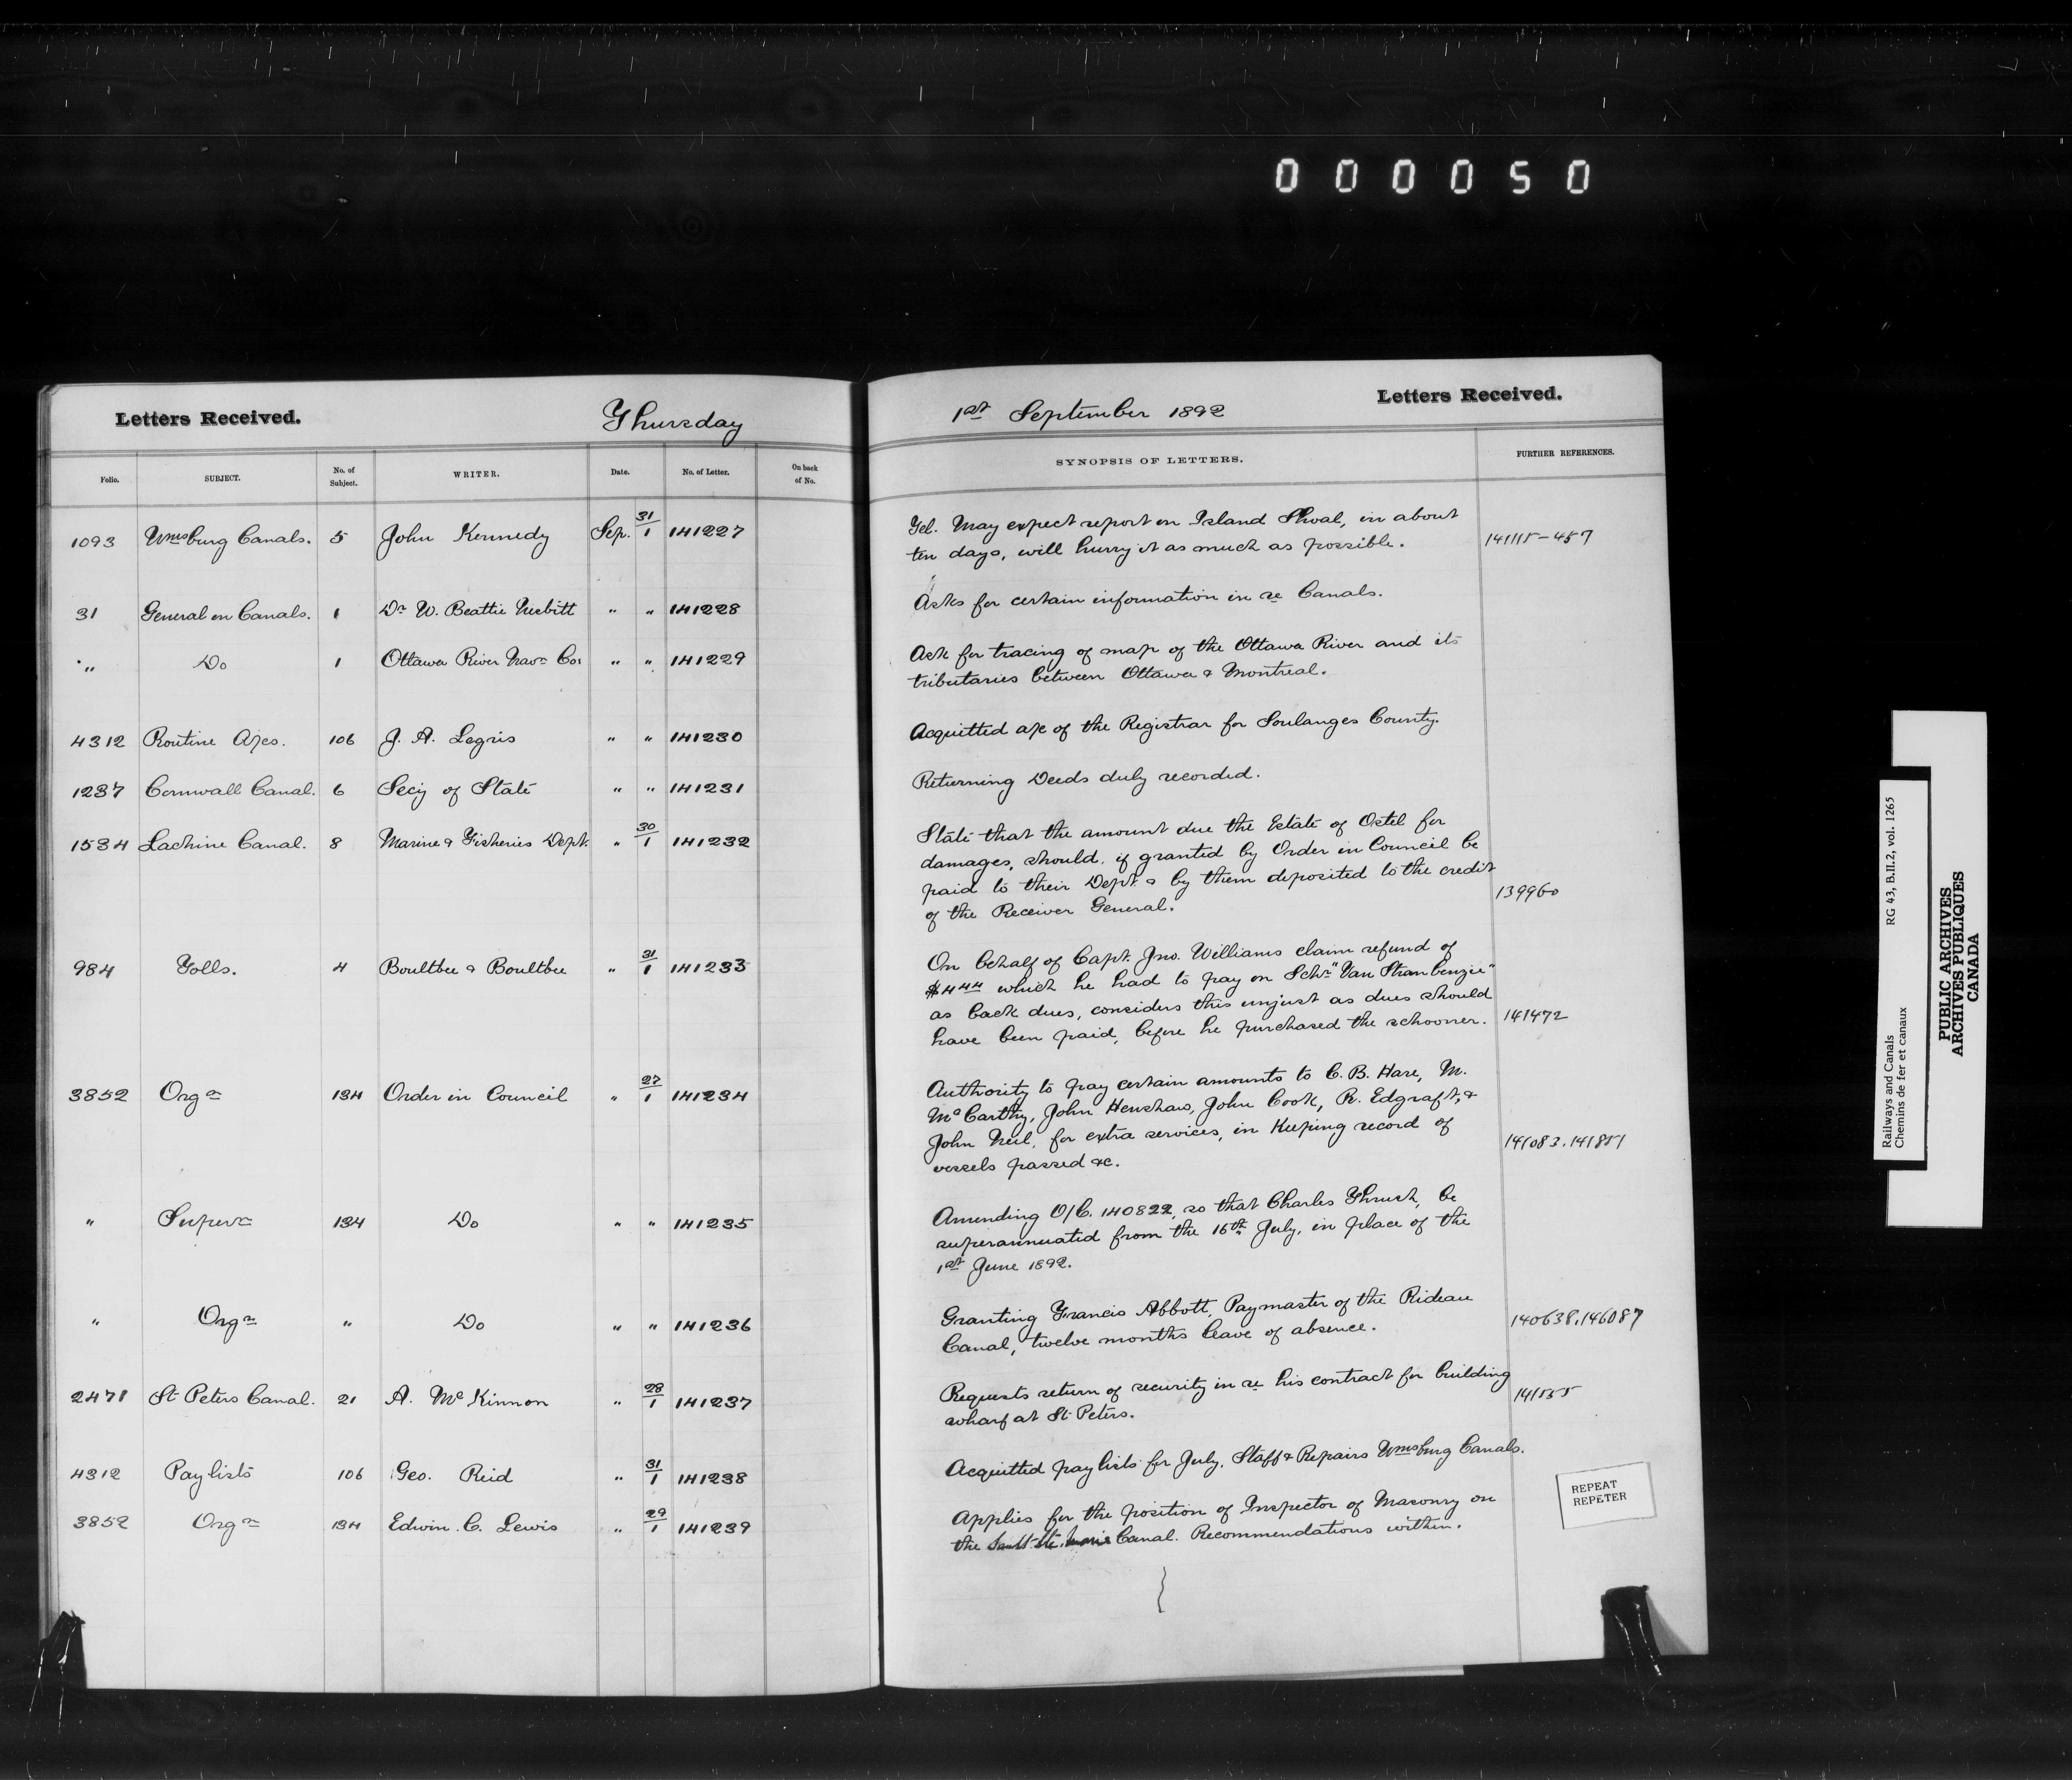 000050
Letters Received.
Thursday
Folio. SUBJECT. No. of Subject. WRITER. Date. No. of Letter. On back of No.
1093 Wmsburg Canals. 5 John Kennedy Sep. 31/1 141227
31 General on Canals. 1 Dr W. Beattie Nesbitt " " 141228
" Do 1 Ottawa River Navn Co. " " 141229
4312 Routine A/cs. 106 J. A. Legris " " 141230
1237 Cornwall Canal. 6 Secy of State " " 141231
1534 Lachine Canal. 8 Marine & Fisheries Dept. " 30/1 141232
984 Tolls. 4 Boultbee & Boultbee " 31/1 141233
3852 Orgn 134 Order in Council " 27/1 141234
" Supern 134 Do " " 141235
" Orgn " Do " " 141236
2471 St Peters Canal. 21 A. McKinnon " 28/1 141237
4312 Paylists 106 Geo. Reid " 31/1 141238
3852 Orgn 134 Edwin C. Lewis " 29/1 141239
1st September 1892
Letters Received.
SYNOPSIS OF LETTERS. FURTHER REFERENCES.
Tel. May expect report on Island Shoal, in about
ten days, will hurry it as much as possible. 141115-457
Asks for certain information in re Canals.
Ask for tracing of map of the Ottawa River and its
tributaries between Ottawa & Montreal.
Acquitted a/c of the Registrar for Soulanges County.
Returning Deeds duly recorded.
State that the amount due the Estate of Ostel for
damages, should, if granted by Order in Council be
paid to their Dept. & by them deposited to the credit
of the Receiver General. 139960
On behalf of Capt. Jno. Williams claim refund of
$4.44 which he had to pay on Schr "Van Straubenzie"
as back dues, considers this unjust as dues should
have been paid, before he purchased the schooner. 141472
Authority to pay certain amounts to C. B. Hare, M.
McCarthy, John Henshaw, John Cook, R. Edgraft, &
John Neil, for extra services, in Keeping record of
vessels passed &c. 141083.141851
Amending O/C. 140822, so that Charles Thrush, be
superannuated from the 16th July, in place of the
1st June 1892.
Granting Francis Abbott, Paymaster of the Rideau
Canal, twelve months leave of absence. 140638.146087
Requests return of security in re his contract for building
wharf at St Peters. 141535
Acquitted paylists for July, Staff & Repairs Wmsburg Canals.
Applies for the position of Inspector of Masonry on
the Sault Ste. Marie Canal. Recommendations within.
REPEAT
REPETER
Railways and Canals RG 43, B.II.2, vol. 1265
Chemins de fer et canaux
PUBLIC ARCHIVES
ARCHIVES PUBLIQUES
CANADA